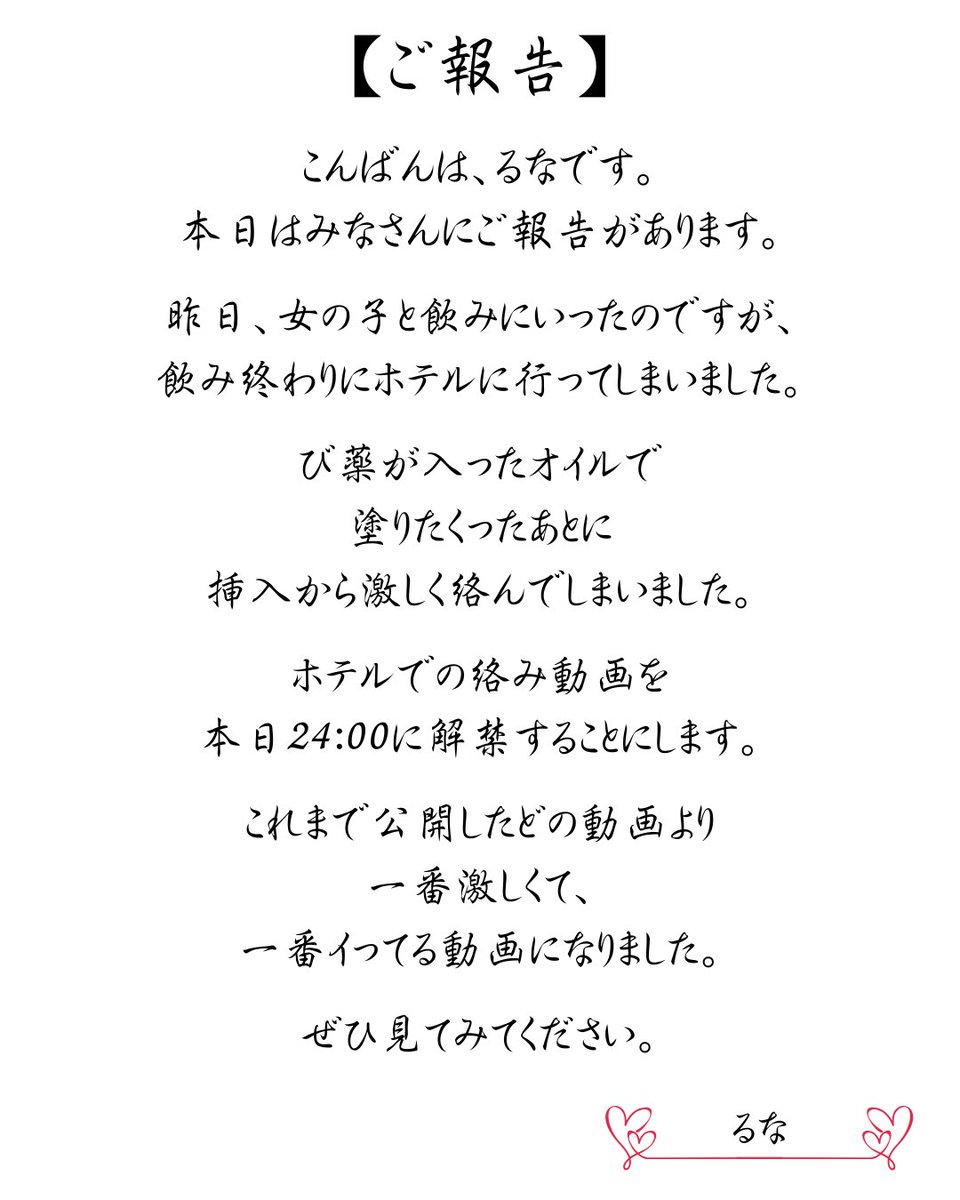 【ご報告】
こんばんは、るなです。
本日はみなさんにご報告があります。
昨日、女の子と飲みにいったのですが、
飲み終わりにホテルに行ってしまいました。
び薬が入ったオイルで
塗りたくったあとに
挿入から激しく絡んでしまいました。
ホテルでの絡み動画を
本日24:00に解禁することにします。
これまで公開したどの動画より
一番激しくて、
一番イってる動画になりました。
ぜひ見てみてください。
るな